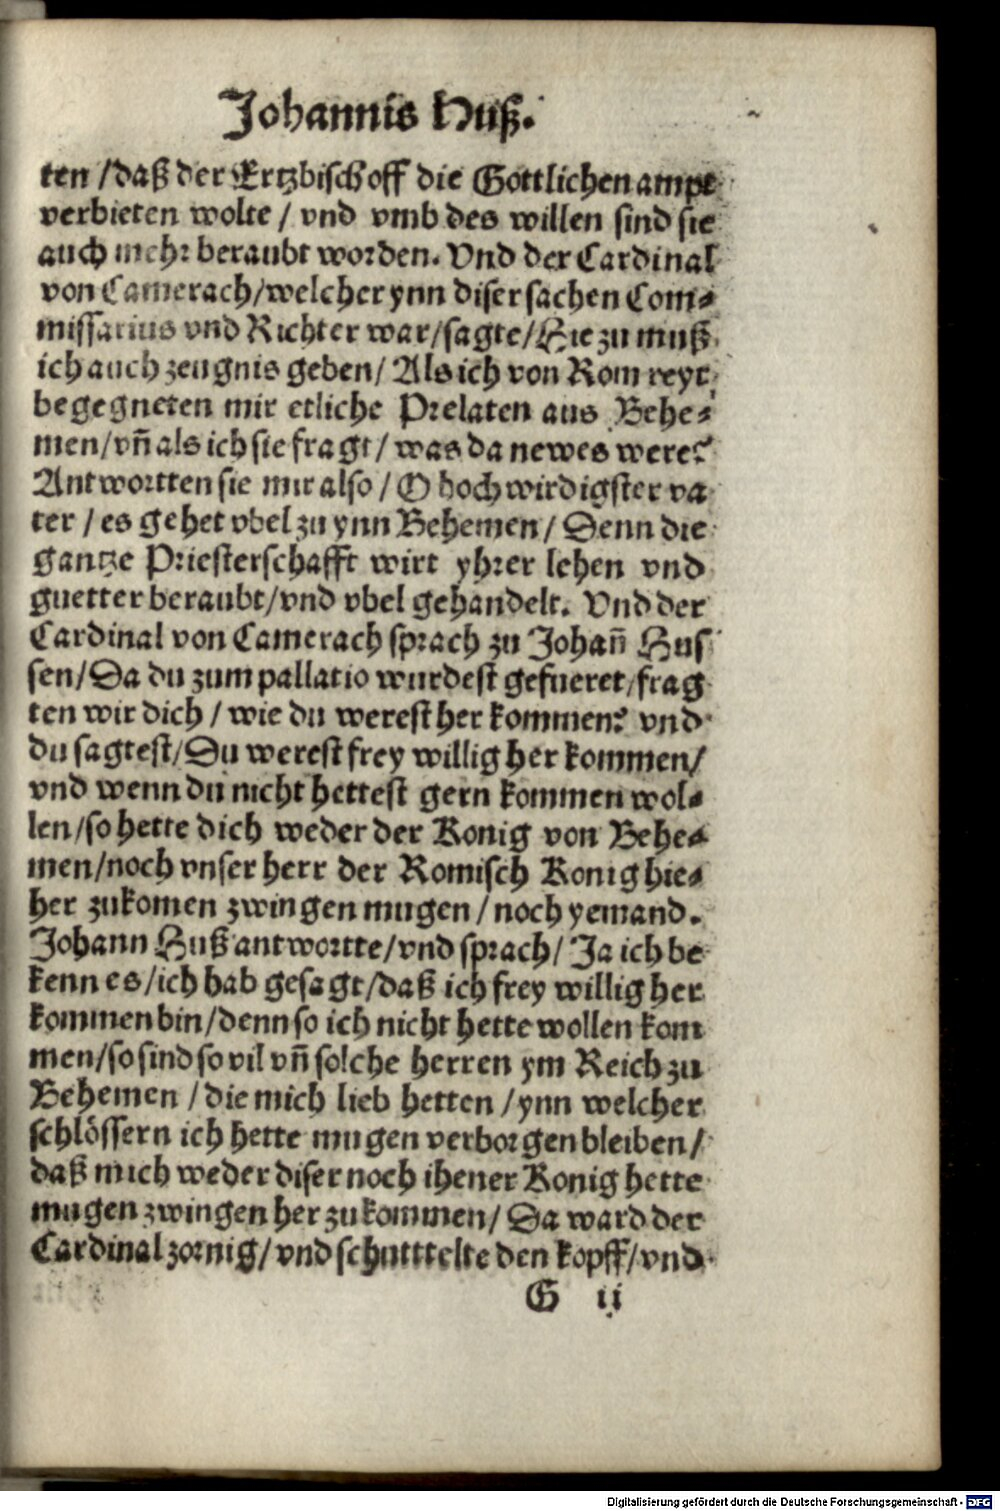 Johannis Huß.
ten /daß der Ertzbischoff die Gottlichen ampt
verbieten wolte / vnd vmb des willen sind sie
auch mehr beraubt worden. Vnd der Cardinal
von Camerach/welcher ynn diser sachen Com⸗
missarius vnd Richter war/sagte/Hie zu muß
ich auch zeugnis geben/ Als ich von Rom reyt
begegneten mir etliche Prelaten aus Behe⸗
men/vñ als ich sie fragt/ was da newes were?
Antwortten sie mir also / O hochwirdigster va
ter / es gehet vbel zu ynn Behemen/ Denn die
gantze Priesterschafft wirt yhrer lehen vnd
guetter beraubt/vnd vbel gehandelt. Vnd der
Cardinal von Camerach sprach zu Johañ Hus
sen/Da du zum pallatio wurdest gefueret/frag
ten wir dich / wie du werest her kommen? vnd
du sagtest/Du werest frey willig her kommen/
vnd wenn du nicht hettest gern kommen wol⸗
len/so hette dich weder der Konig von Behe⸗
men/noch vnser herr der Romisch Konig hie⸗
her zukomen zwingen mugen / noch yemand.
Johann Huß antwortte/vnd sprach/ Ja ich be
kenn es/ich hab gesagt/daß ich frey willig her
kommen bin/denn so ich nicht hette wollen kom
men/so sind so vil vñ solche herren ym Reich zu
Behemen / die mich lieb hetten /ynn welcher
schlössern ich hette mugen verborgen bleiben/
daß mich weder diser noch ihener Konig hette
mugen zwingen her zu kommen/ Da ward der
Cardinal zornig/vnd schutttelte den kopff/vnd
G ii
Digitalisierung gefördert durch die Deutsche Forschungsgemeinschaft - DFG